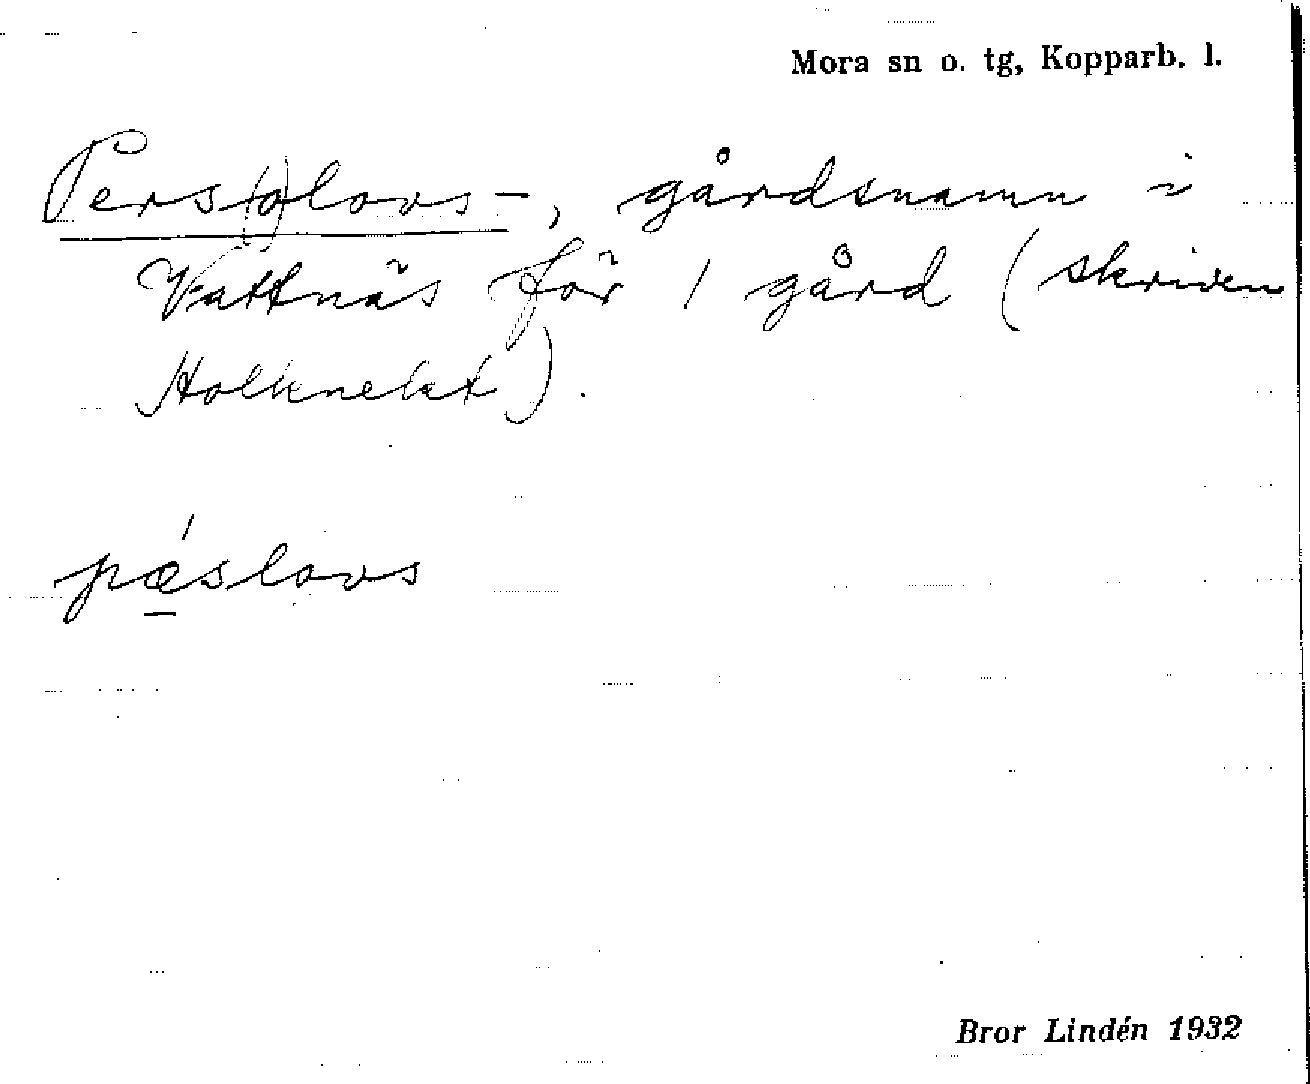 Mora sn o. tg, Kopparb. l.
Pers(o)lovs-, gårdsnamn i
Vattnäs för 1 gård (skriven
Holknekt).
pǽslovs
Bror Lindén 1932